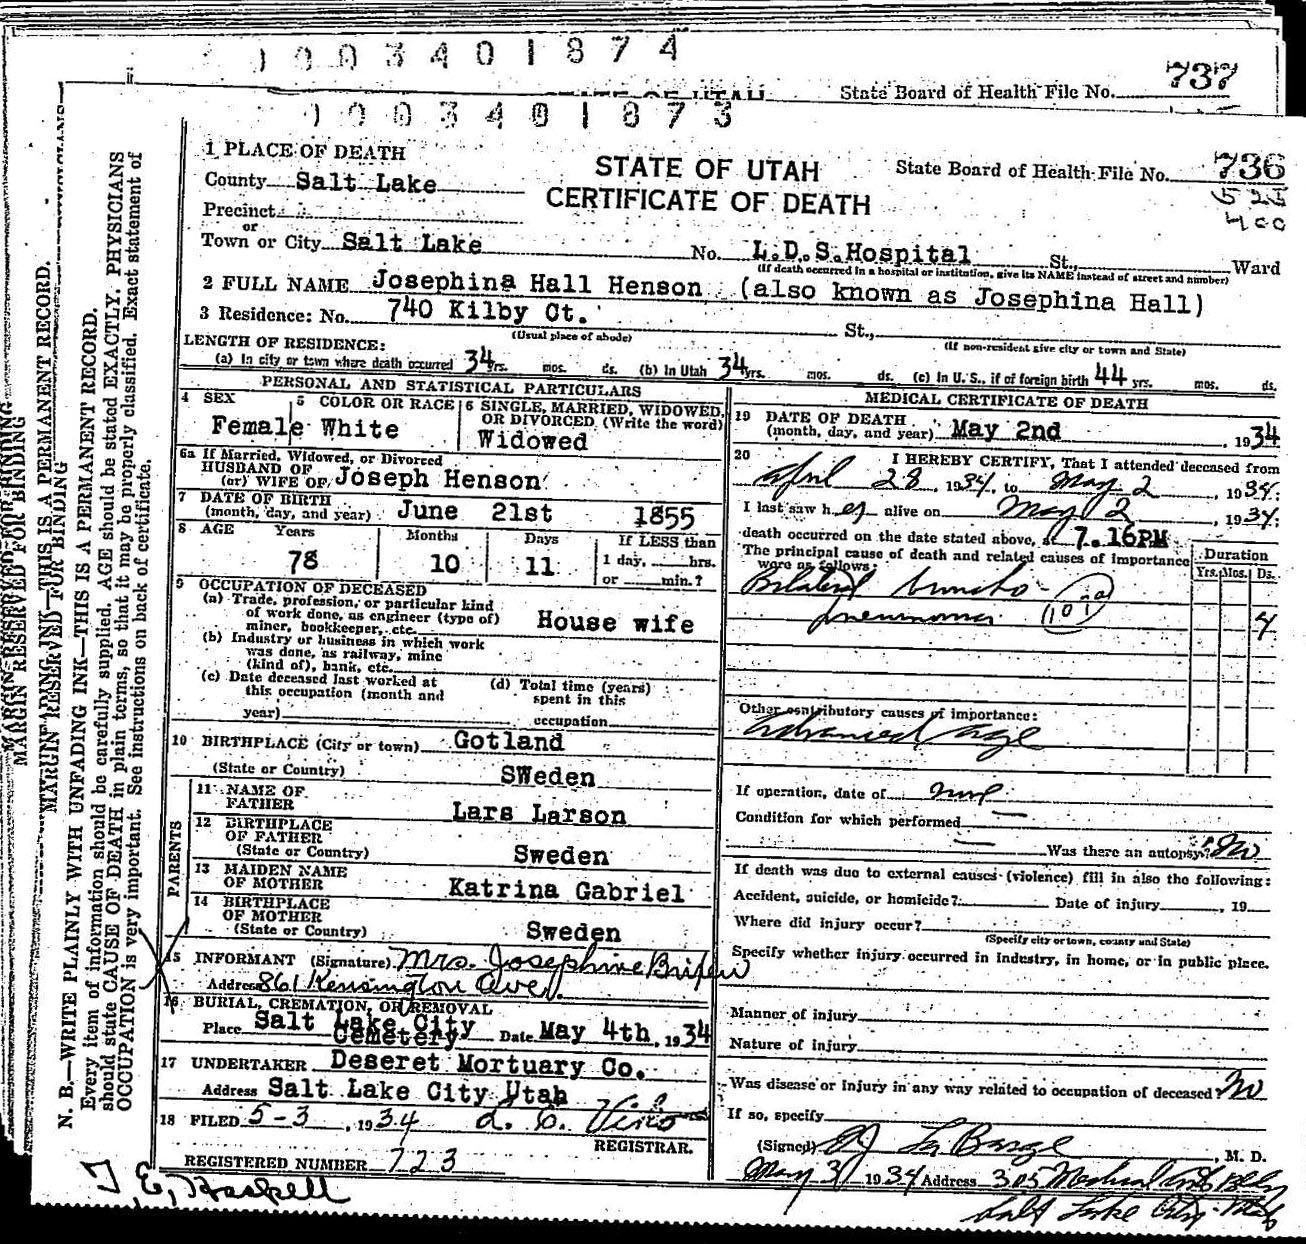 1003401874
STATE OF UTAH
State Board of Health File No. 737
1003401873
1 PLACE OF DEATH
STATE OF UTAH
CERTIFICATE OF DEATH
State Board of Health File No. 736
525
400
County Salt Lake
Precinct
or
Town or City Salt Lake No. L.D.S. Hospital St., Ward
(If death occurred in a hospital or institution, give its NAME instead of street and number)
2 FULL NAME Josephina Hall Henson (also known as Josephina Hall)
3 Residence: No. 740 Kilby Ct. St.,
(Usual place of abode) (If non-resident give city or town and State)
LENGTH OF RESIDENCE:
(a) In city or town where death occurred 34 yrs. mos. ds. (b) In Utah 34 yrs. mos. ds. (c) In U. S., if of foreign birth 44 yrs. mos. ds.
PERSONAL AND STATISTICAL PARTICULARS
4 SEX Female
5 COLOR OR RACE White
6 SINGLE, MARRIED, WIDOWED, OR DIVORCED (Write the word) Widowed
6a If Married, Widowed, or Divorced
HUSBAND OF
(or) WIFE OF Joseph Henson
7 DATE OF BIRTH
(month, day, and year) June 21st 1855
8 AGE Years Months Days If LESS than
78 10 11 1 day, hrs.
or min.?
9 OCCUPATION OF DECEASED
(a) Trade, profession, or particular kind
of work done, as engineer (type of)
miner, bookkeeper, etc. House wife
(b) Industry or business in which work
was done, as railway, mine
(kind of), bank, etc.
(c) Date deceased last worked at
this occupation (month and
year)
(d) Total time (years)
spent in this
occupation
10 BIRTHPLACE (City or town) Gotland
(State or Country) SWeden
PARENTS
11 NAME OF
FATHER Lars Larson
12 BIRTHPLACE
OF FATHER
(State or Country) Sweden
13 MAIDEN NAME
OF MOTHER Katrina Gabriel
14 BIRTHPLACE
OF MOTHER
(State or Country) Sweden
15 INFORMANT (Signature) Mrs. Josephine
Address 861 Kensington Ave.
16 BURIAL, CREMATION, OR REMOVAL
Place Salt Lake City
Cemetery Date May 4th, 1934
17 UNDERTAKER Deseret Mortuary Co.
Address Salt Lake City Utah
18 FILED 5-3, 1934
REGISTRAR.
REGISTERED NUMBER 723
T. E. Haskell
MEDICAL CERTIFICATE OF DEATH
19 DATE OF DEATH
(month, day, and year) May 2nd, 1934
20 I HEREBY CERTIFY, That I attended deceased from
April 28, 1934, to May 2, 1934;
I last saw her alive on May 2, 1934;
death occurred on the date stated above, at 7.16PM
The principal cause of death and related causes of importance
were as follows: Duration
Yrs. Mos. Ds.
Bilateral broncho-
pneumonia 4
Other contributory causes of importance:
Advanced age
If operation, date of none
Condition for which performed
Was there an autopsy? No
If death was due to external causes (violence) fill in also the following:
Accident, suicide, or homicide? Date of injury , 19
Where did injury occur?
(Specify city or town, county and State)
Specify whether injury occurred in industry, in home, or in public place.
Manner of injury
Nature of injury
Was disease or injury in any way related to occupation of deceased? No
If so, specify
(Signed) La Barge, M. D.
May 3 1934 Address 305 Medical Arts Bldg
Salt Lake City Utah
MARGIN RESERVED FOR BINDING
N. B.—WRITE PLAINLY WITH UNFADING INK—THIS IS A PERMANENT RECORD.
Every item of information should be carefully supplied. AGE should be stated EXACTLY. PHYSICIANS
should state CAUSE OF DEATH in plain terms, so that it may be properly classified. Exact statement of
OCCUPATION is very important. See instructions on back of certificate.